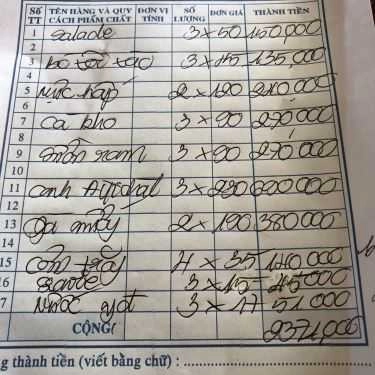 Số TT TÊN HÀNG VÀ QUY CÁCH PHẨM CHẤT ĐƠN VỊ TÍNH SỐ LƯỢNG ĐƠN GIÁ THÀNH TIỀN
1 salade 3 x 50 150,000
2
3 xào 3 x 45 135,000
5 Mực hấp 2 x 120 240,000
6
7 cá kho 3 x 90 270,000
8
9 ram 3 x 90 270,000
10
11 canh 3 x 230 690,000
12
13 gà 2 x 190 380 000
14
15 cơm 4 x 35 140 000
16 3 x 15 45 000
7 nước ngọt 3 x 17 51 000
CỘNG 2371,000
g thành tiền (viết bằng chữ) :